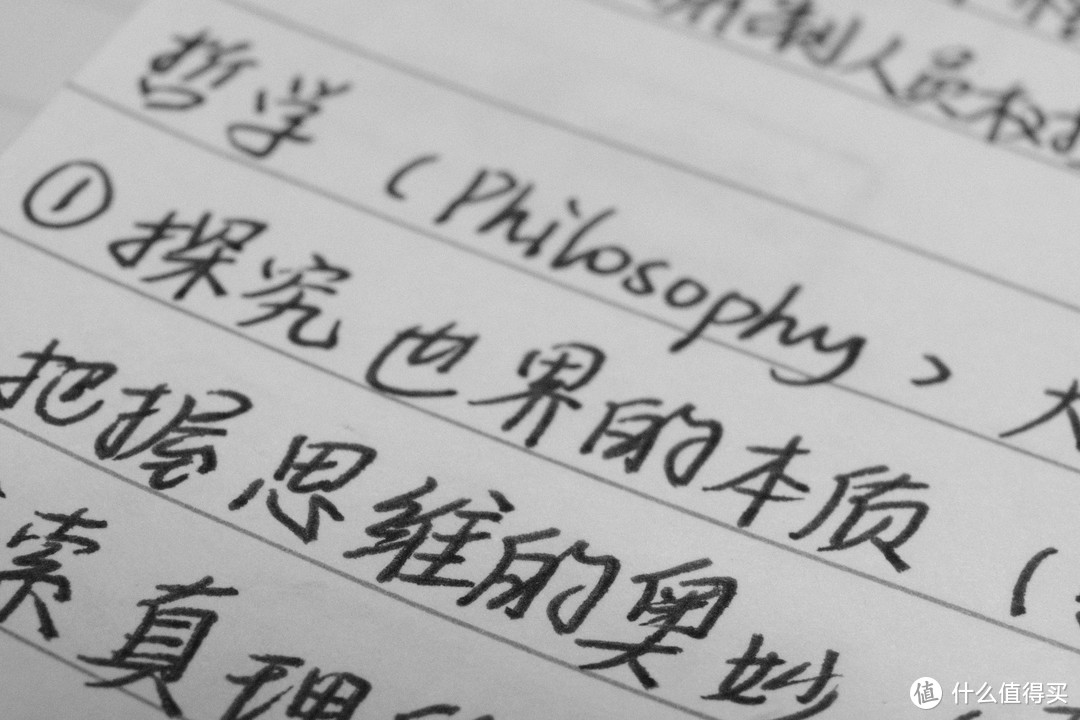 制人员权
哲学（Philosophy）
①探究世界的本质（
把握思维的奥妙
索真理
值 什么值得买